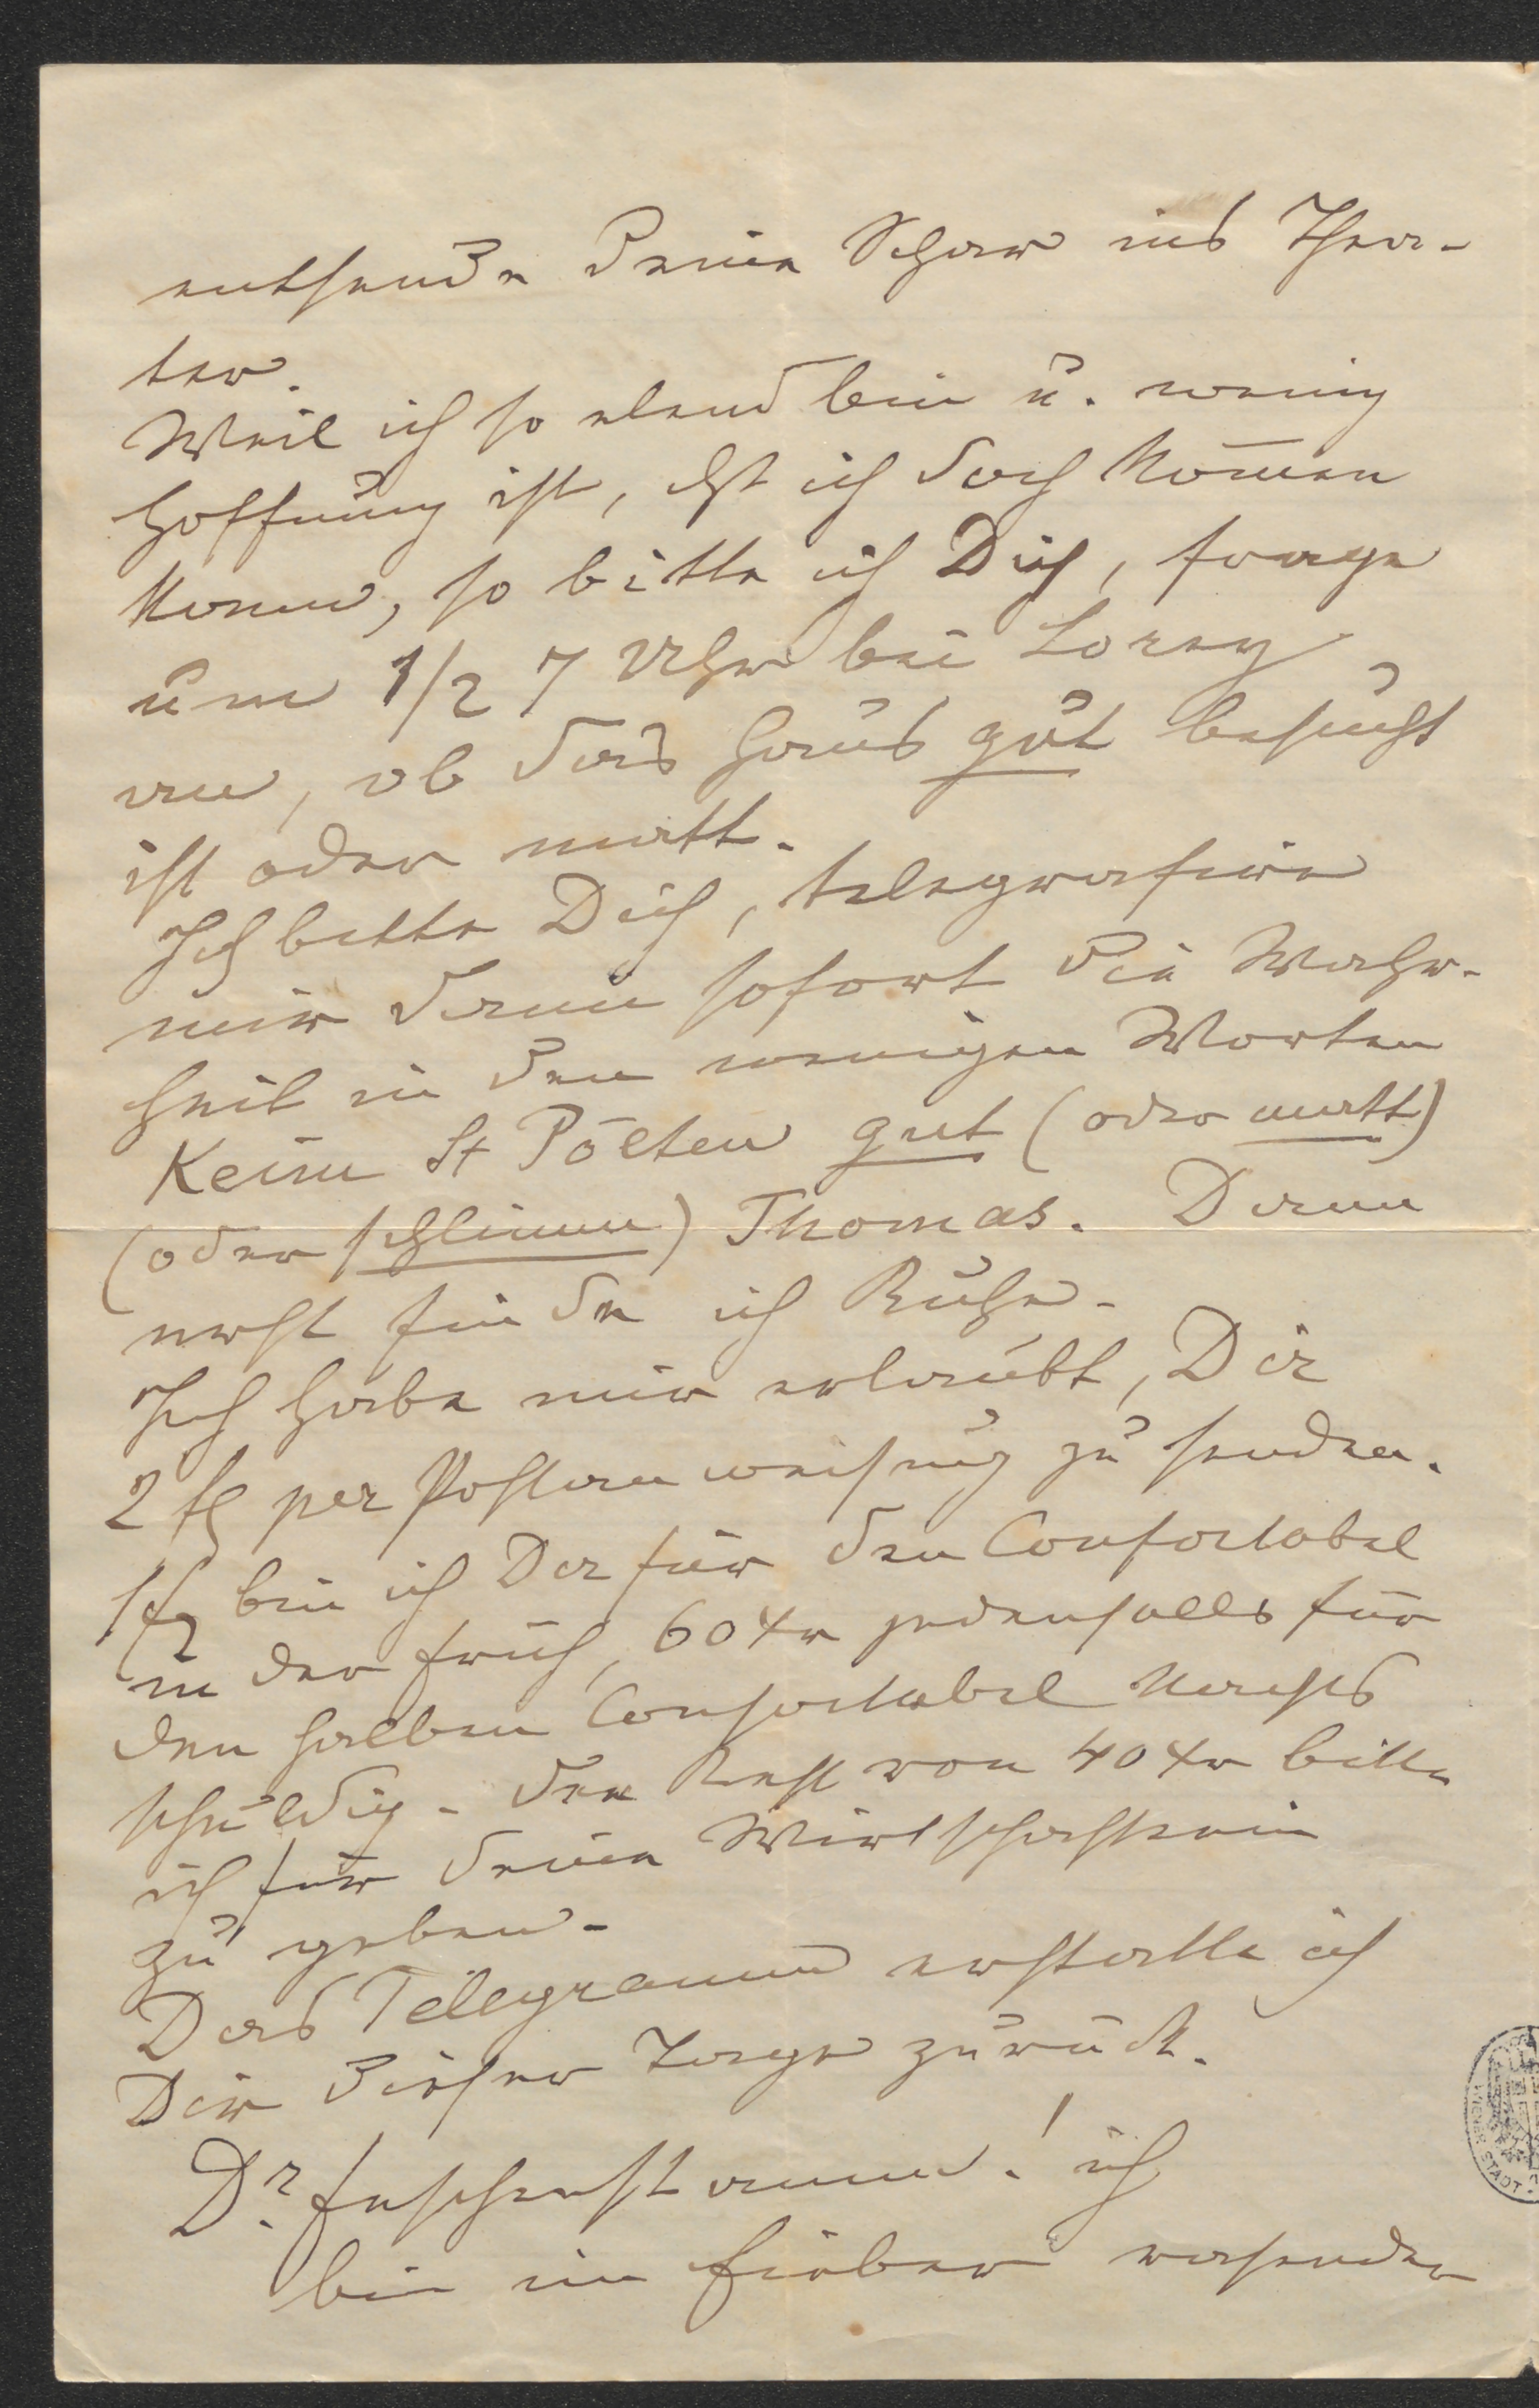 entsende Deine Schar ins Thea-
ter.
Weil ich so elend bin u. wenig
Hoffnung ist, dß ich doch kom̄en
kann, so bitte ich Dich, frage
um 1/2 7 Uhr bei Lorey
an, ob das Haus gut besucht
ist oder matt.
Ich bitte Dich, telegrafire
mir dann sofort die Wahr-
heit in den wenigen Worten
Keim St Pölten gut (oder matt)
(oder schlimm) Thomas. Dann
erst finde ich Ruhe.
Ich habe mir erlaubt, Dir
2 fl per Postanweisung zu senden.
1 fl bin ich Dir für den Confortabel
in der Früh, 60 Xr jedenfalls für
den halben Confortabel Nachts
schuldig. Den Rest von 40 Xr bitte
ich für Deine Wirtschafterin
zu geben.
Das Telegramm erstatte ich
Dir dieser Tage zurück.
Dr. Faschenstamm! ich
bin im Fieber rasender
WIENER STADT-